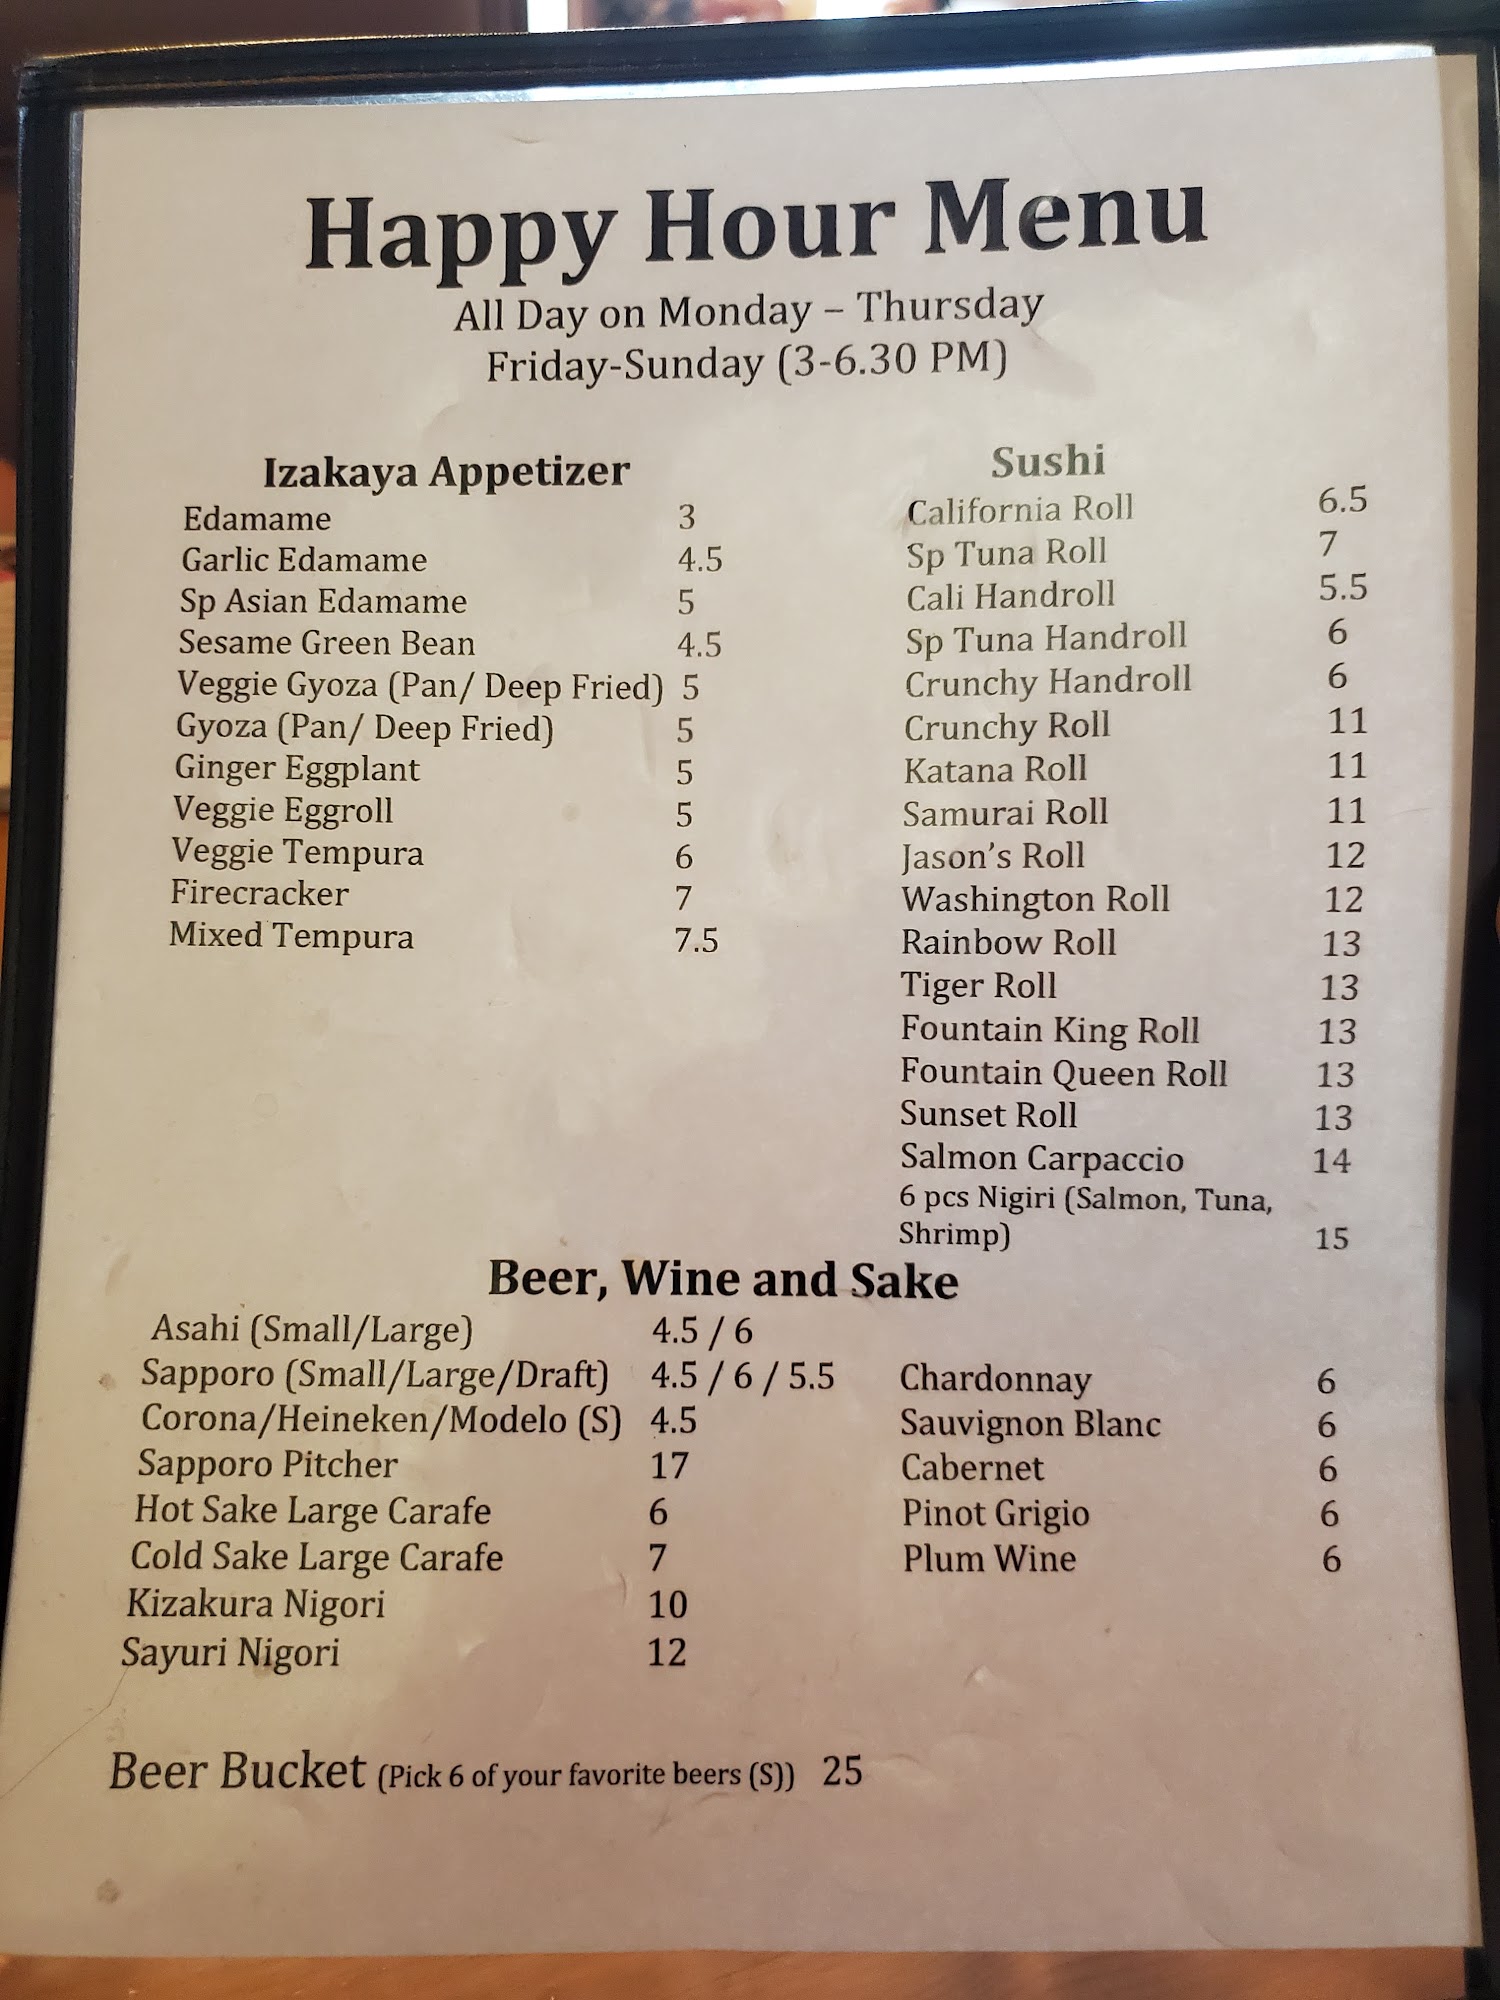 Happy Hour Menu
All Day on Monday – Thursday
Friday-Sunday (3-6.30 PM)
Izakaya Appetizer
Edamame 3
Garlic Edamame 4.5
Sp Asian Edamame 5
Sesame Green Bean 4.5
Veggie Gyoza (Pan/ Deep Fried) 5
Gyoza (Pan/ Deep Fried) 5
Ginger Eggplant 5
Veggie Eggroll 5
Veggie Tempura 6
Firecracker 7
Mixed Tempura 7.5
Sushi
California Roll 6.5
Sp Tuna Roll 7
Cali Handroll 5.5
Sp Tuna Handroll 6
Crunchy Handroll 6
Crunchy Roll 11
Katana Roll 11
Samurai Roll 11
Jason's Roll 12
Washington Roll 12
Rainbow Roll 13
Tiger Roll 13
Fountain King Roll 13
Fountain Queen Roll 13
Sunset Roll 13
Salmon Carpaccio 14
6 pcs Nigiri (Salmon, Tuna,
Shrimp) 15
Beer, Wine and Sake
Asahi (Small/Large) 4.5 / 6
Sapporo (Small/Large/Draft) 4.5 / 6 / 5.5
Corona/Heineken/Modelo (S) 4.5
Sapporo Pitcher 17
Hot Sake Large Carafe 6
Cold Sake Large Carafe 7
Kizakura Nigori 10
Sayuri Nigori 12
Chardonnay 6
Sauvignon Blanc 6
Cabernet 6
Pinot Grigio 6
Plum Wine 6
Beer Bucket (Pick 6 of your favorite beers (S)) 25